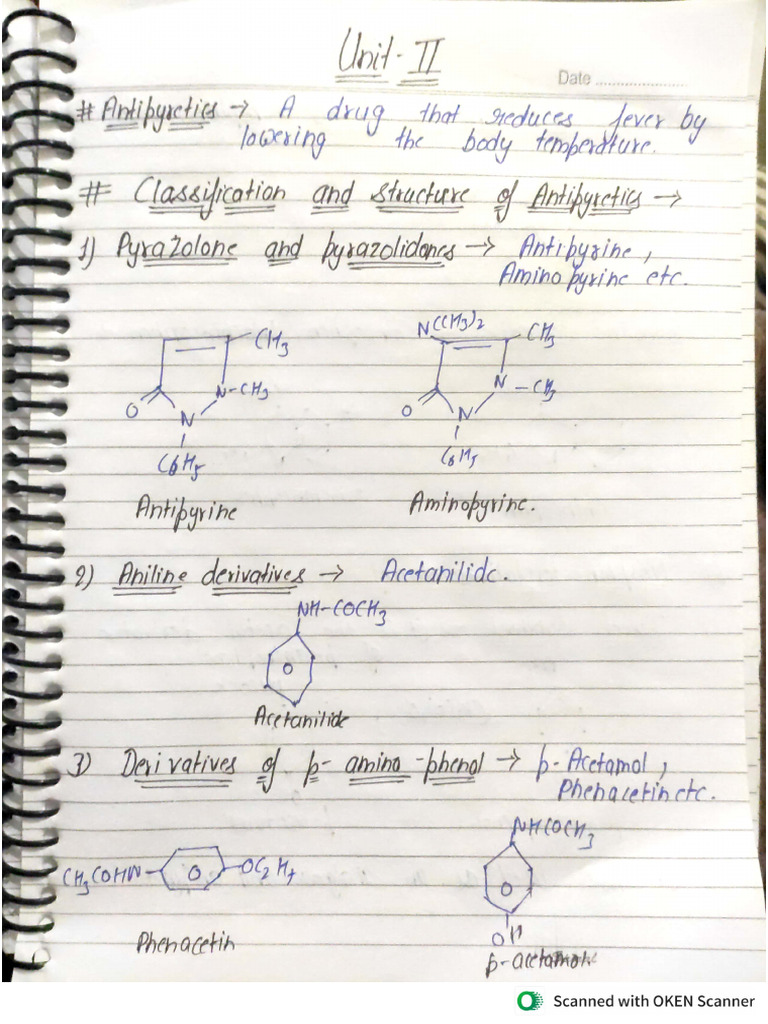 Unit-II
Date
# Antipyretics → A drug that reduces fever by
lowering the body temperature.
# Classification and structure of Antipyretics →
1) Pyrazolone and pyrazolidones → Antipyrine,
Aminopyrine etc.
CH3
N-CH3
O
N
C6H5
Antipyrine
N(CH3)2
CH3
N-CH3
O
N
C6H5
Aminopyrine.
2) Aniline derivatives → Acetanilide.
NH-COCH3
Acetanilide
3) Derivatives of p-amino-phenol → p-Acetamol,
Phenacetin etc.
CH3COHN
OC2H5
Phenacetin
NHCOCH3
OH
p-acetamol
Scanned with OKEN Scanner